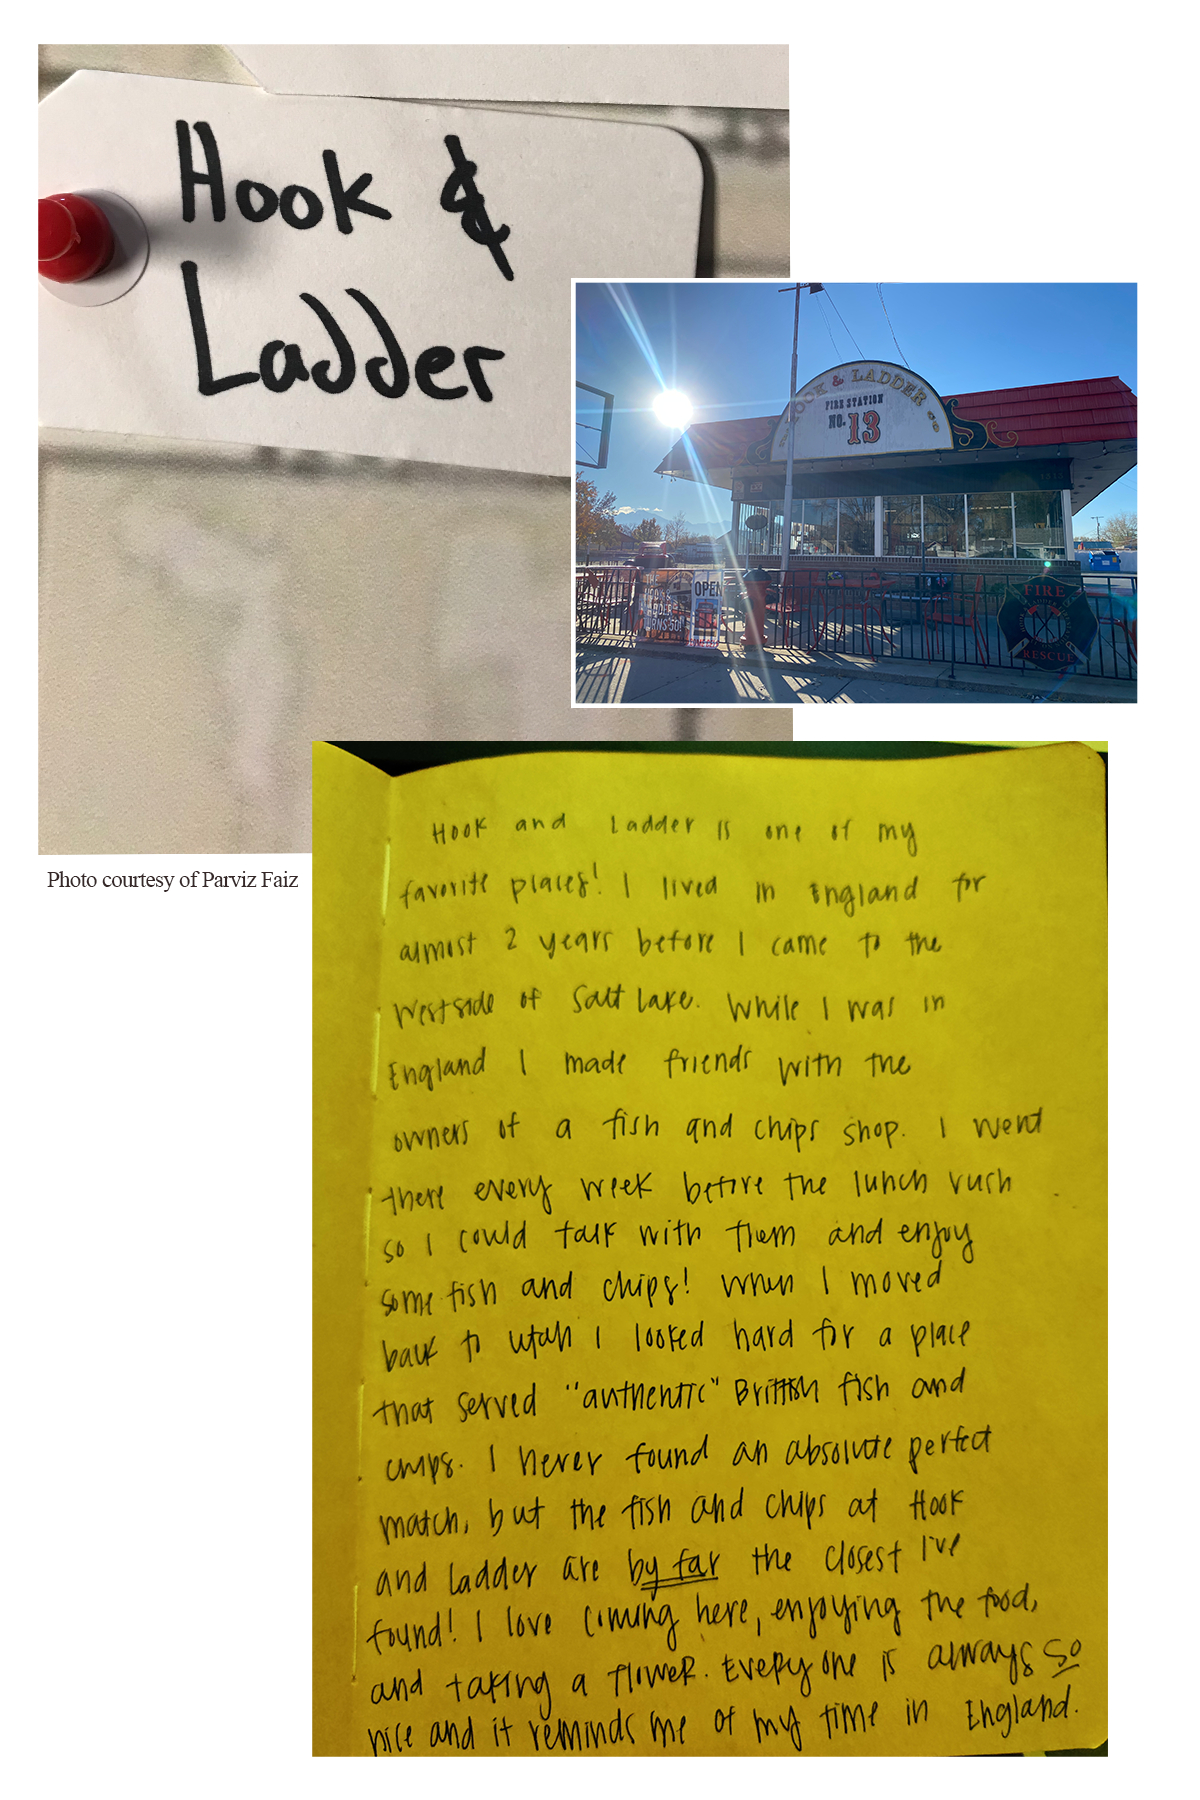 Hook &
Ladder
HOOK & LADDER CO
FIRE STATION
NO. 13
OPEN
FIRE
RESCUE
Photo courtesy of Parviz Faiz
Hook and Ladder is one of my
favorite places! I lived in England for
almost 2 years before I came to the
Westside of Salt Lake. While I was in
England I made friends with the
owners of a fish and chips shop. I went
there every week before the lunch rush
so I could talk with them and enjoy
some fish and chips! When I moved
back to Utah I looked hard for a place
that served "authentic" British fish and
chips. I never found an absolute perfect
match, but the fish and chips at Hook
and Ladder are by far the closest I've
found! I love coming here, enjoying the food,
and taking a flower. Everyone is always so
nice and it reminds me of my time in England.